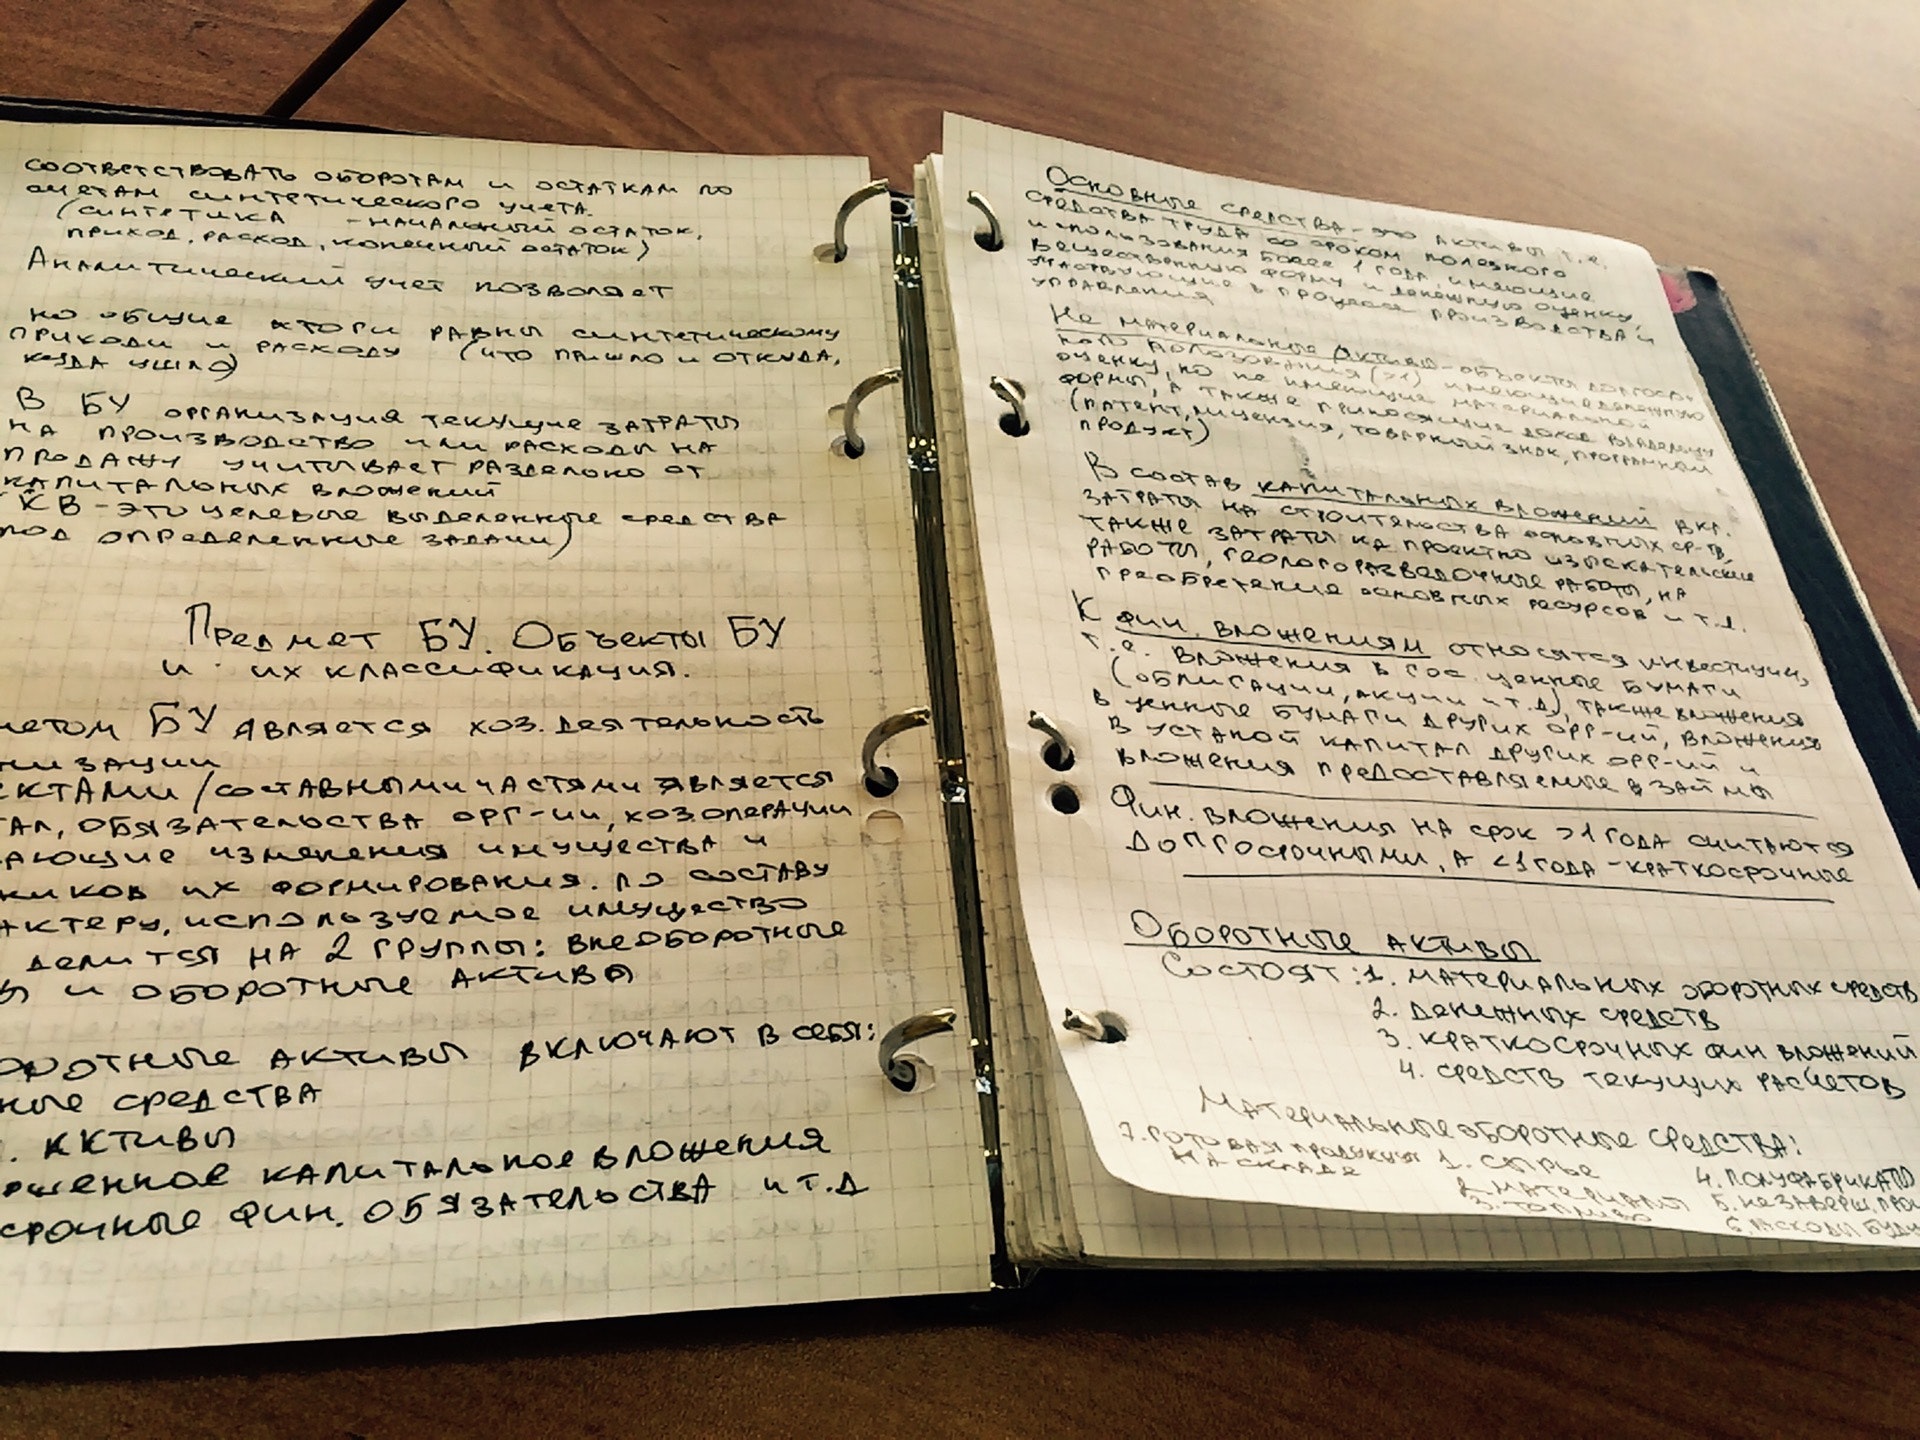 соответствовать оборотам и остаткам по
счетам синтетического учета.
(синтетика - начальный остаток,
приход, расход, конечный остаток)
Аналитический учет позволяет
но общие итоги равны синтетическому
приходи и расходу (что пришло и откуда,
куда ушло)
В БУ организация текущие затраты
на производство или расходы на
продажу учитывает раздельно от
капитальных вложений
(КВ - это целевые выделенные средства
под определенные задачи)
Предмет БУ. Объекты БУ
и их классификация.
метом БУ является хоз. деятельность
низации
ектами / составными частями является
тал, обязательства орг-ии, хоз операции
ающие изменения имущества и
ников их формирования. по составу
актеру, используемое имущество
делится на 2 группы: внеоборотные
ы и оборотные активы
оротные активы включают в себя:
ные средства
. ктивы
ршенное капитальное вложения
срочные фин. обязательства и т.д
Основные средства - это активы т.е.
средства труда со сроком полезного
использования более 1 года, имеющие
вещественную форму и денежную оценку,
участвующие в процессе производства и
управления
Не материальные активы - объекты долгоср-
ного пользования (>1) имеющие денежную
оценку, но не имеющие материальной
формы, а также приносящие доход владельцу
(патент, лицензия, товарный знак, программный
продукт)
В состав капитальных вложений вкл.
затраты на строительства основных ср-тв,
также затраты на проектно изыскательские
работы, геологоразведочные работы, на
преобретение основных ресурсов и т.д.
К фин. вложениям относятся инвестиции,
т.е. вложения в гос. ценные бумаги
(облигации, акции и т.д), также вложения
в ценные бумаги других орг-ий, вложения
в устакой капитал других орг-ий и
вложения предоставляемые в займы
Фин. вложения на срок >1 года считаются
долгосрочными, а <1 года - краткосрочные
Оборотные активы
Состоят: 1. материальных оборотных средств
2. денежных средств
3. краткосрочных фин вложений
4. средств текущих расчетов
Материальные оборотные средства:
7. готовая продукция на складе
1. сырье
2. материалы
3. топливо
4. полуфабрикаты
5. незаверш. прои
6. расходы буду